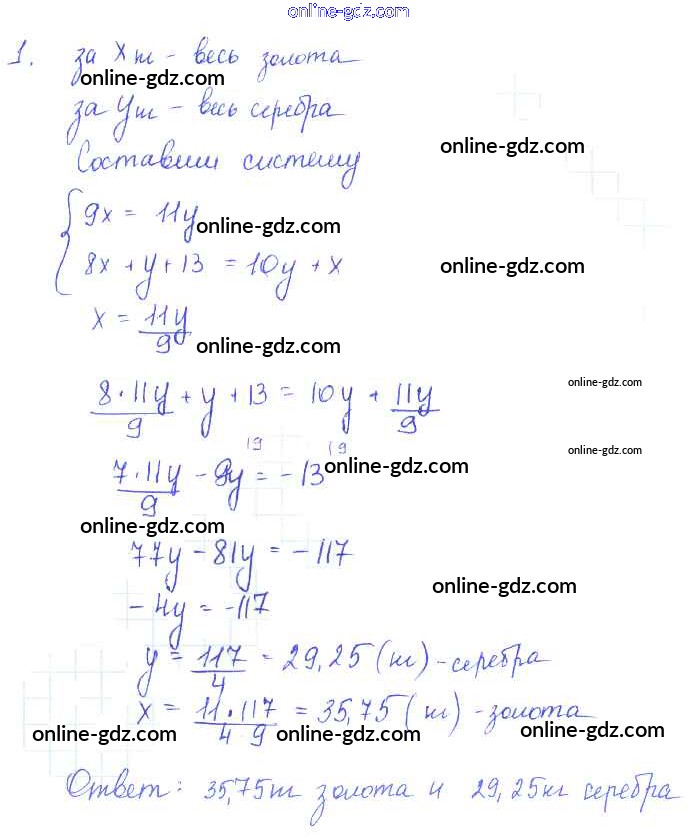 online-gdz.com
1. за x m - весь золота
online-gdz.com
за y m - весь серебра
Составим систему
online-gdz.com
9x = 11y
online-gdz.com
8x + y + 13 = 10y + x
online-gdz.com
x = 11y/9
online-gdz.com
8·11y/9 + y + 13 = 10y + 11y/9
online-gdz.com
|9 |9
online-gdz.com
7·11y/9 - 9y = -13
online-gdz.com
online-gdz.com
77y - 81y = -117
online-gdz.com
-4y = -117
y = 117/4 = 29,25 (кг) - серебра
x = 11·117/4 9 = 35,75 (кг) - золота
online-gdz.com online-gdz.com online-gdz.com
Ответ: 35,75кг золота и 29,25кг серебра